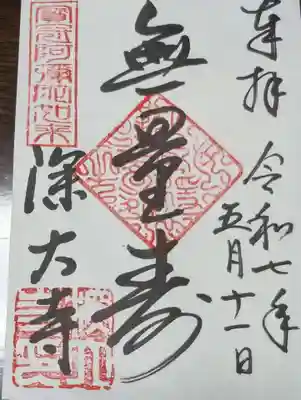 奉拝
令和七年
五月十一日
無量寿
寶冠阿彌陀如来
深大寺